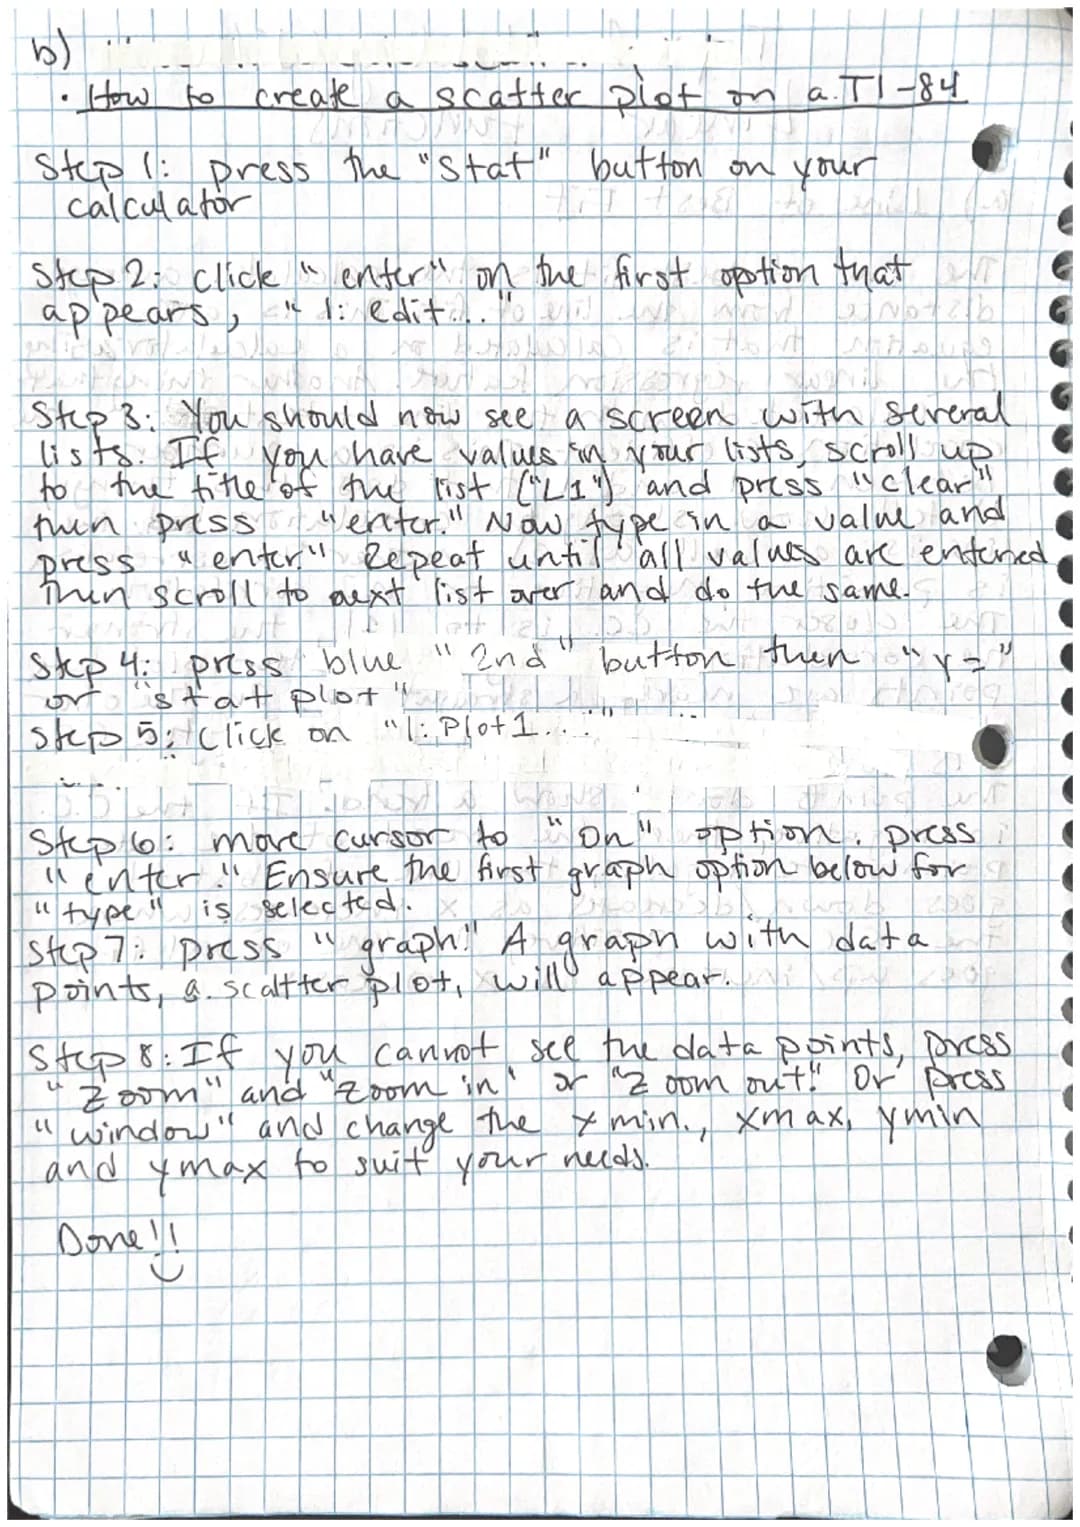 b)
· How to create a scatter plot on a TI-84
Step 1: press the "Stat" button on your
calculator
Step 2: click "enter" on the first option that
appears, "1: edit..."
Step 3: You should now see a screen with several
lists. If you have values in your lists, scroll up
to the title of the list ("L1") and press "clear"
then press "enter." Now type in a value and
press "enter." Repeat until all values are entered
Then scroll to next list over and do the same.
Step 4: press blue "2nd" button then "y="
or "stat plot"
Step 5: Click on "1: Plot1..."
Step 6: move cursor to "On" option. press
"enter." Ensure the first graph option below for
"type" is selected.
Step 7: press "graph." A graph with data
points, a scaltter plot, will appear.
Step 8: If you cannot see the data points, press
"Zoom" and "Zoom in" or "Zoom out." Or press
"window" and change the xmin., xmax, ymin
and ymax to suit your needs.
Done!!